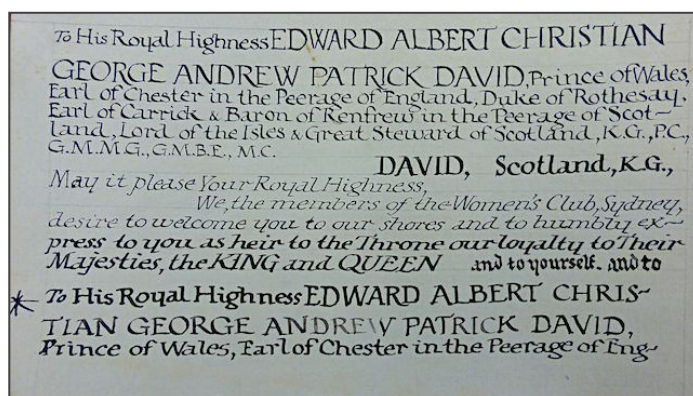 To His Royal Highness EDWARD ALBERT CHRISTIAN
GEORGE ANDREW PATRICK DAVID, Prince of Wales,
Earl of Chester in the Peerage of England, Duke of Rothesay,
Earl of Carrick & Baron of Renfrew in the Peerage of Scot~
land, Lord of the Isles & Great Steward of Scotland, K.G., P.C.,
G.M.M.G., G.M.B.E., M.C.
DAVID, Scotland, K.G.,
May it please Your Royal Highness,
We, the members of the Women's Club, Sydney,
desire to welcome you to our shores and to humbly ex~
press to you as heir to the Throne our loyalty to Their
Majesties, the KING and QUEEN and to yourself. and to
To His Royal Highness EDWARD ALBERT CHRIS~
TIAN GEORGE ANDREW PATRICK DAVID,
Prince of Wales, Earl of Chester in the Peerage of Eng~